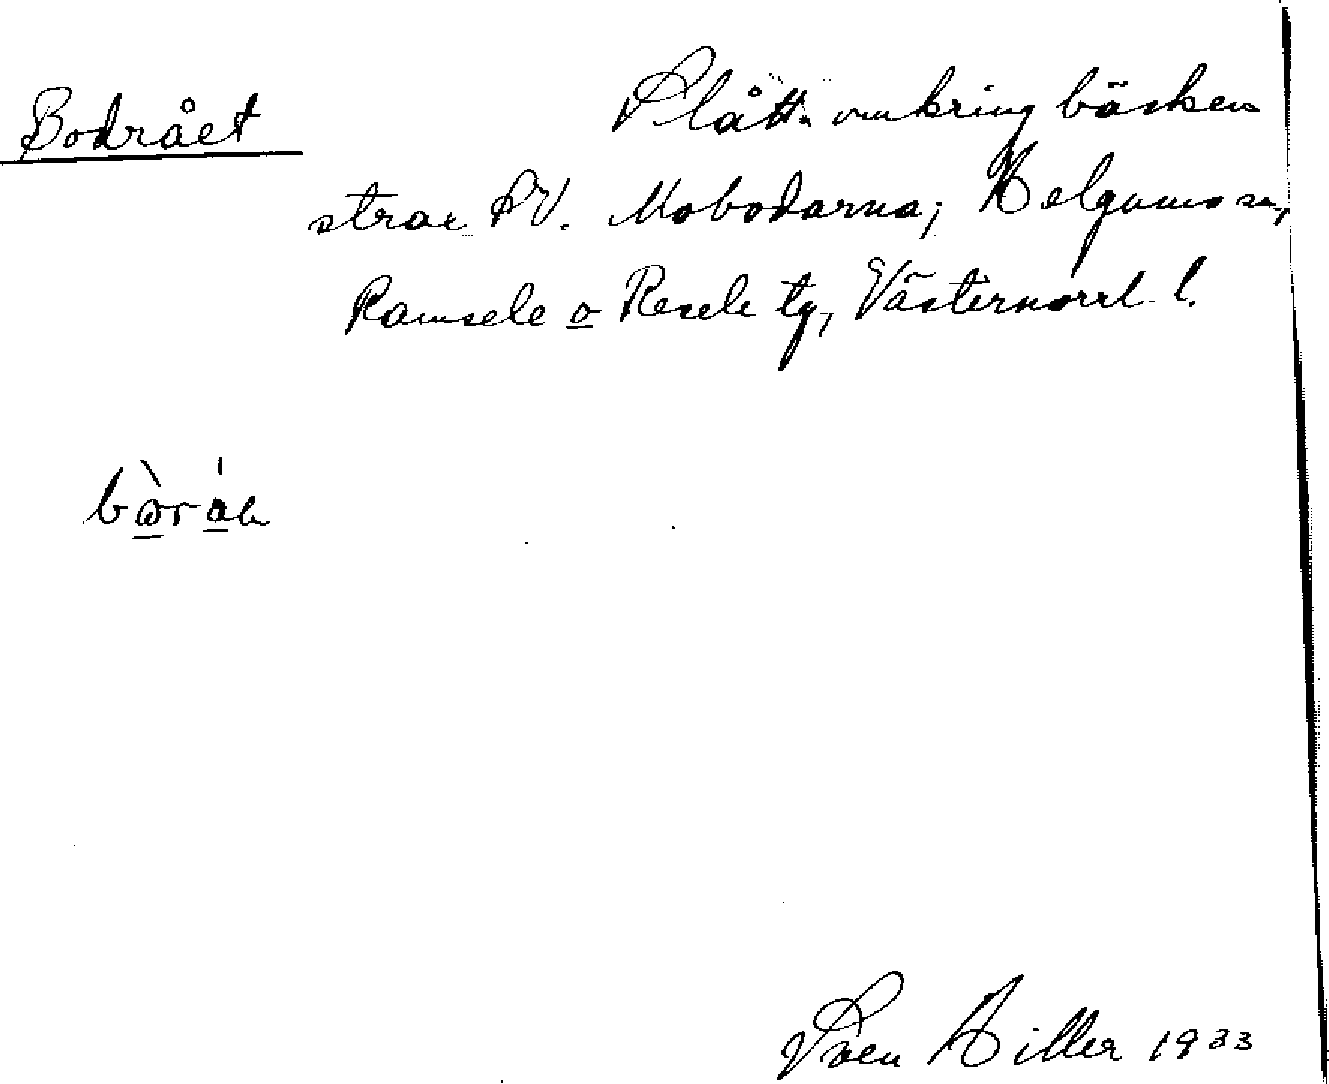 Bodrået Slått. omkring bäcken
strax SV. Mobodarna; Helgumo sn,
Ramsele o Resele tg, Västernorrl. l.
Sven Hiller 1933